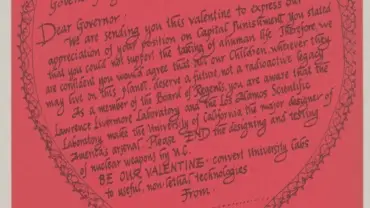 Dear Governor:
We are sending you this valentine to express our
appreciation of your position on Capital Punishment. You stated
that you could not support the taking of a human life. Therefore we
are confident you would agree that our Children, wherever they
may live on this planet, deserve a future, not a radioactive legacy.
As a member of the Board of Regents, you are aware that the
Lawrence Livermore Laboratory and the Los Alamos Scientific
Laboratory, make the University of California the major designer of
America's arsenal. Please END the designing and testing
of nuclear weapons by U.C.
BE OUR VALENTINE - convert University Labs
to useful, non-lethal technologies
From